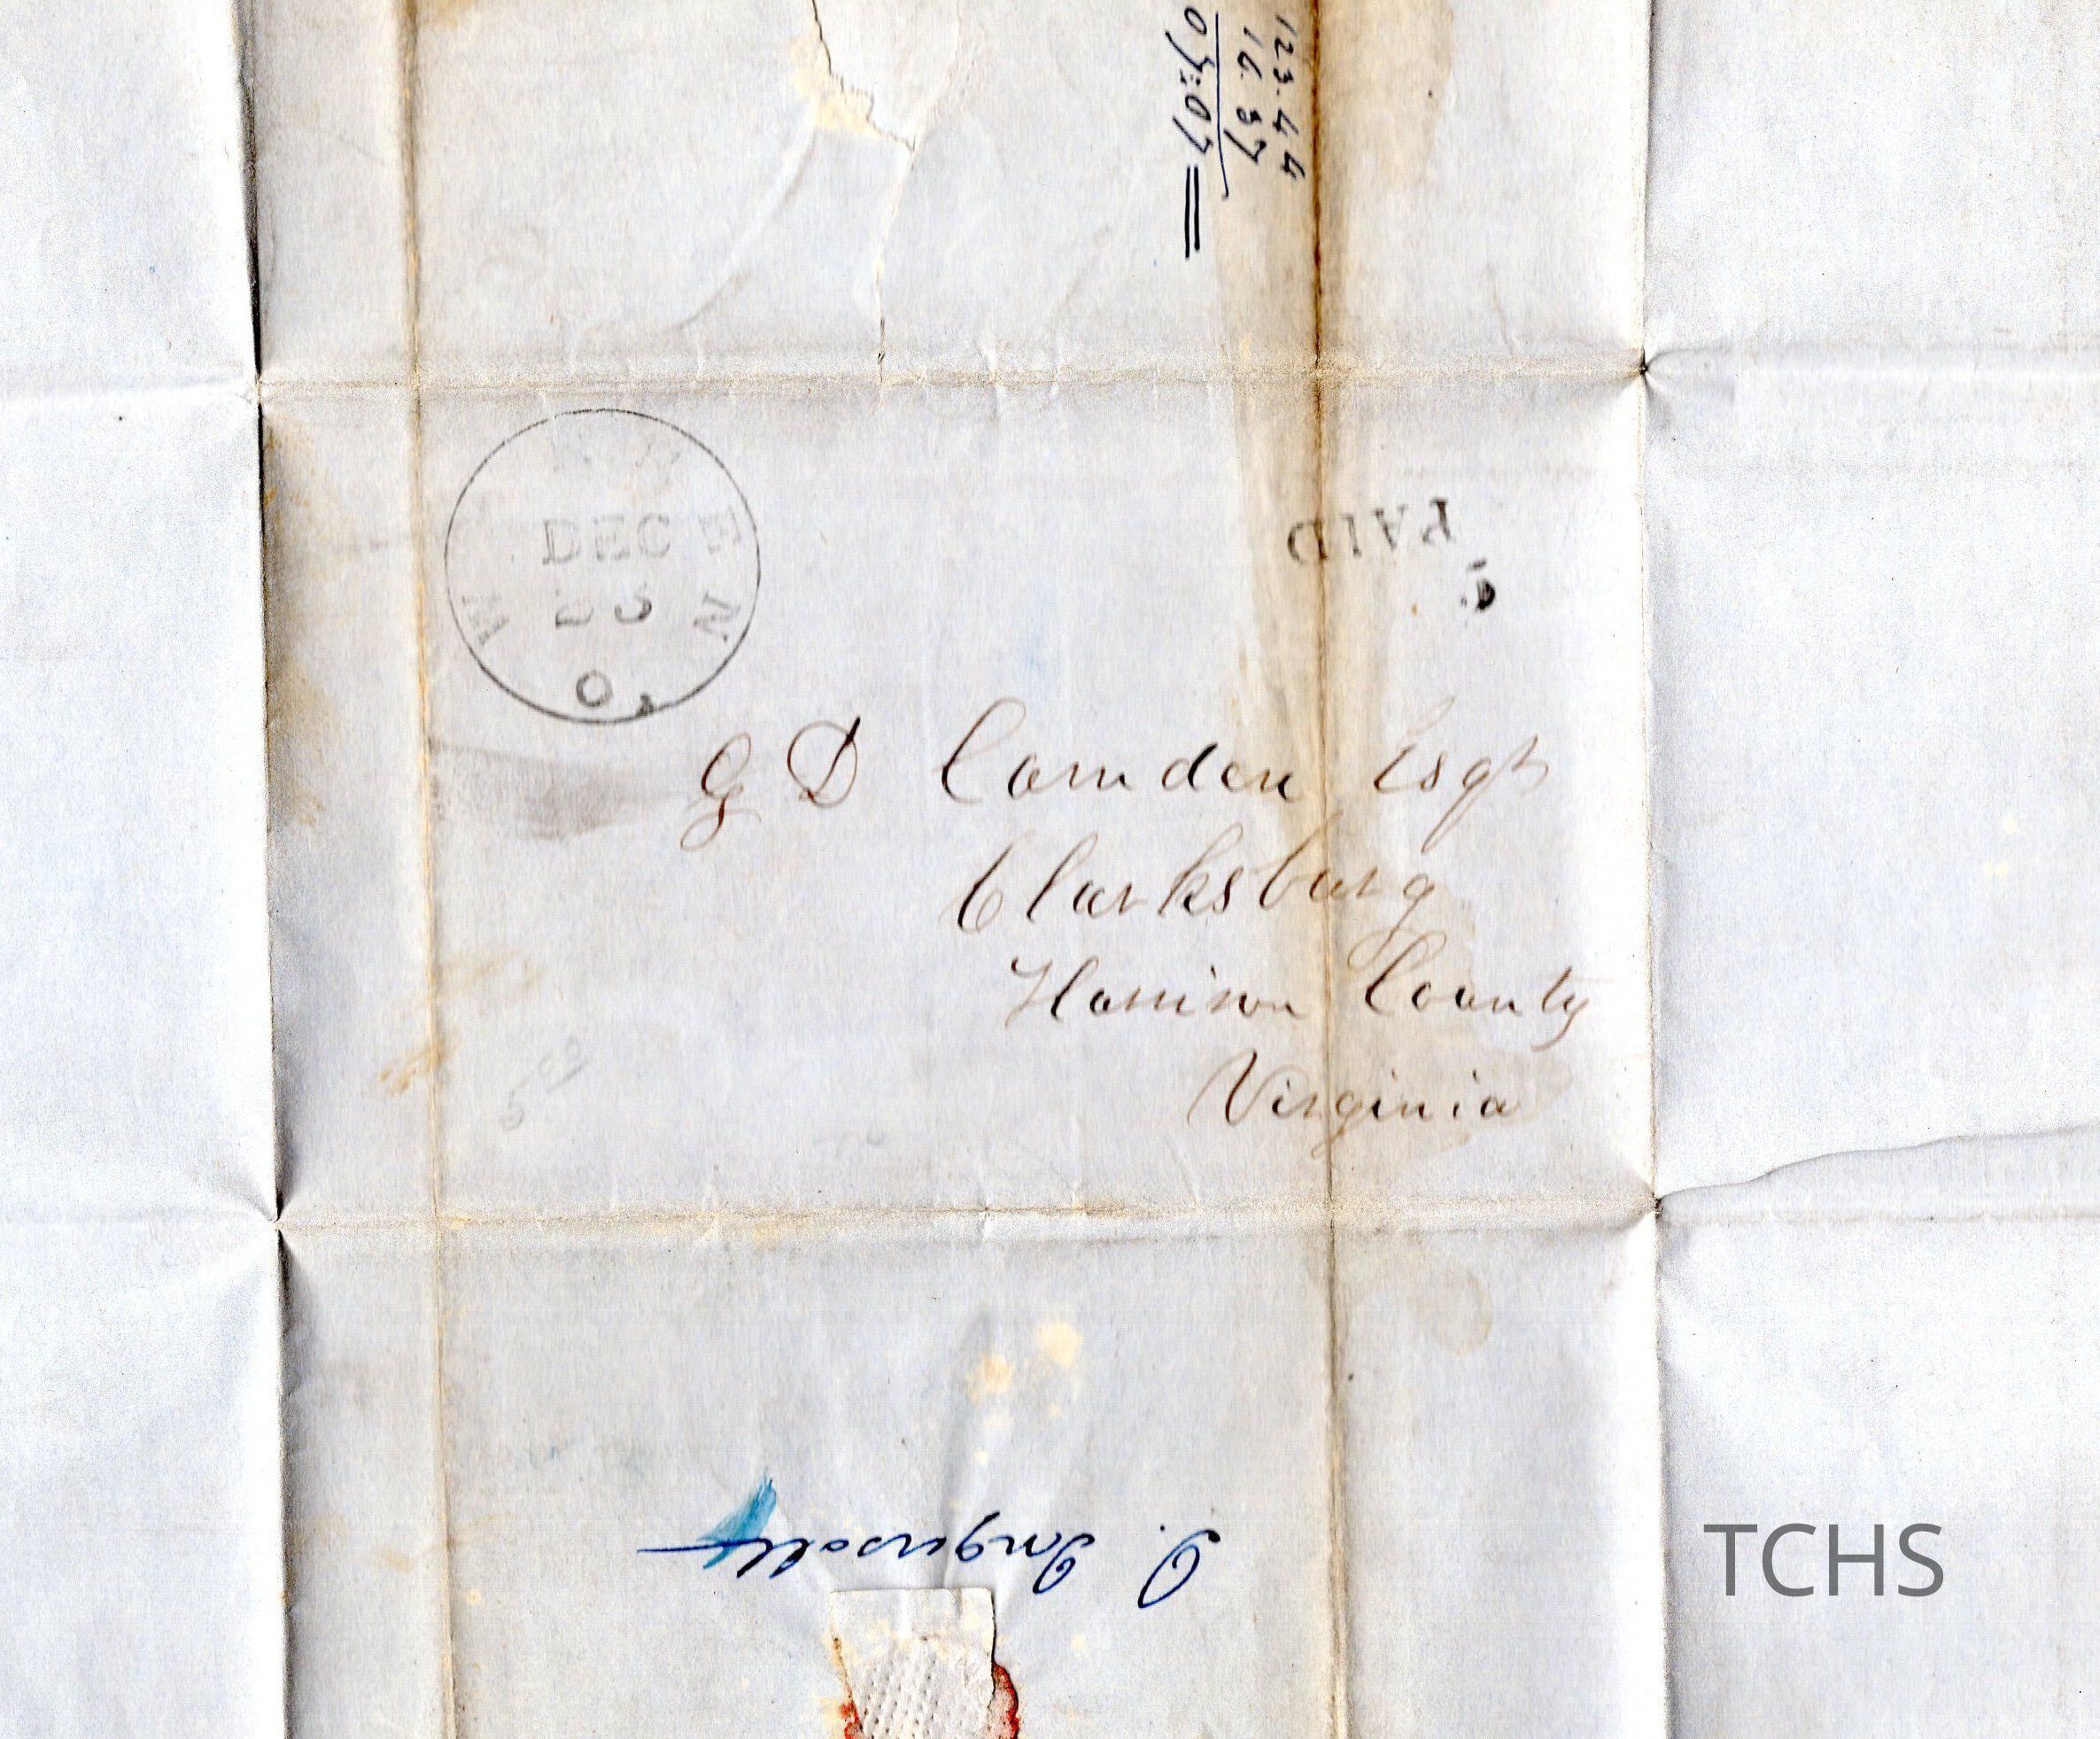 123.44
16.37
03:07
DEC
O.
PAID
G D Camden Esqr
Clarksburg
Harrison County
Virginia
5 00
Ingersoll
TCHS